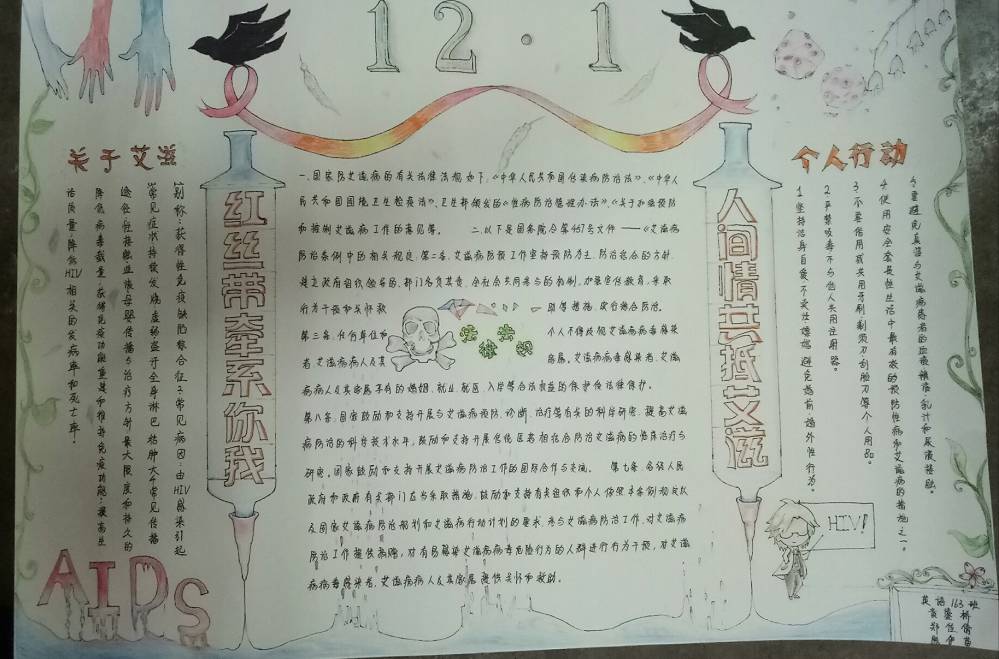 12·1
关于艾滋
别称：获得性免疫缺陷综合征；常见病因：由HIV感染引起
常见症状：持续发烧、虚弱、盗汗，全身淋巴结肿大等；常见传播
途径：性接触、血液、母婴传播等；治疗方针：最大限度和持久的
降低病毒载量；获得免疫功能重建和维持免疫功能；提高生
活质量；降低HIV相关的发病率和死亡率。
红丝带牵系你我
一、国家防艾滋病的有关法律法规如下：《中华人民共和国传染病防治法》、《中华人
民共和国国境卫生检疫法》、卫生部颁发的《性病防治管理办法》、《关于加强预防
和控制艾滋病工作的意见》等。 二、以下是国务院令第457号文件——《艾滋病
防治条例》中的相关规定：第二条、艾滋病防治工作坚持预防为主、防治结合的方针，
建立政府组织领导、部门各负其责、全社会共同参与的机制，加强宣传教育，采取
行为干预和关怀救助等措施，实行综合防治。
第三条、任何单位和个人不得歧视艾滋病病毒感染
者、艾滋病病人及其家属。艾滋病病毒感染者、艾滋
病病人及其家属享有的婚姻、就业、就医、入学等合法权益受法律保护。
第八条、国家鼓励和支持开展与艾滋病预防、诊断、治疗等有关的科学研究，提高艾滋
病防治的科学技术水平；鼓励和支持开展传统医药相结合防治艾滋病的临床治疗与
研究。国家鼓励和支持开展艾滋病防治工作的国际合作与交流。 第七条、各级人民
政府和政府有关部门应当采取措施，鼓励和支持有关组织和个人依照本条例规定以
及国家艾滋病防治规划和艾滋病行动计划的要求，参与艾滋病防治工作，对艾滋病
防治工作提供捐赠，对有易感染艾滋病病毒危险行为的人群进行行为干预，对艾滋
病病毒感染者、艾滋病病人及其家属提供关怀和救助。
人间情共抵艾滋
个人行动
1.坚持洁身自爱，不卖淫嫖娼，避免婚前、婚外性行为。
2.严禁吸毒，不与他人共用注射器。
3.不要借用或共用牙刷、剃须刀、刮脸刀等个人用品。
4.使用安全套是性生活中最有效的预防性病和艾滋病的措施之一。
5.要避免直接与艾滋病患者的血液、精液、乳汁和尿液接触。
HIV!
AIDS
英语163班